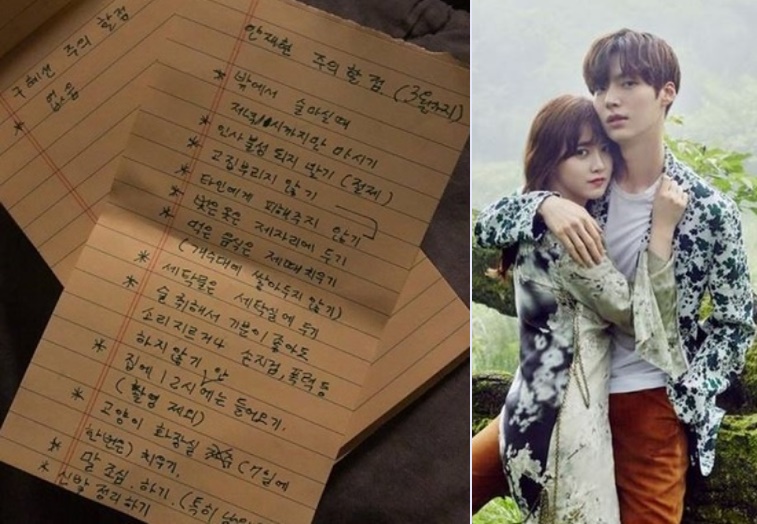 구혜선 주의할점
* 없음
안재현 주의할 점 (3월까지)
* 밖에서 술마실때
저녁 시까지만 마시기
* 인사불성 되지 말기 (절제)
* 고집부리지 않기
* 타인에게 피해주지 않기
* 벗은옷은 제자리에 두기
* 먹은 음식은 제때 치우기
(개수대에 쌓아두지 않기)
* 세탁물은 세탁실에 두기
* 술 취해서 기분이 좋아도
소리지르거나 손찌검, 폭력 등
하지 않기
* 집에 12시 안에는 들어오기.
(촬영 제외)
* 고양이 화장실 (7일에
한번은) 치우기.
* 말 조심. 하기. (특히
* 신발 정리하기